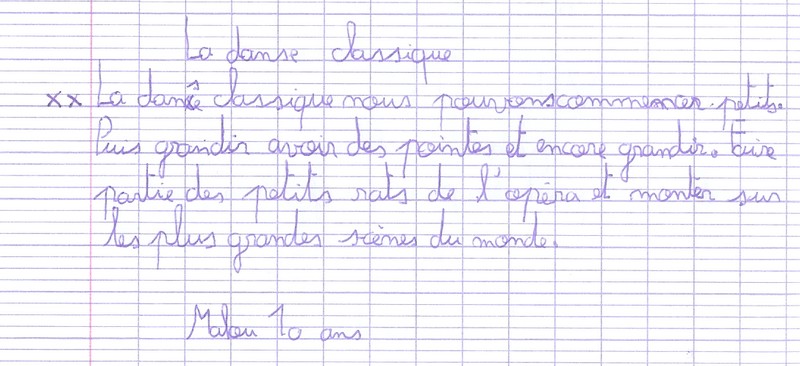 La danse classique
xx La danse classique nous pouvons commencer petits.
Puis grandir avoir des pointes et encore grandir. Faire
partie des petits rats de l'opéra et monter sur
les plus grandes scènes du monde.
Malou 10 ans